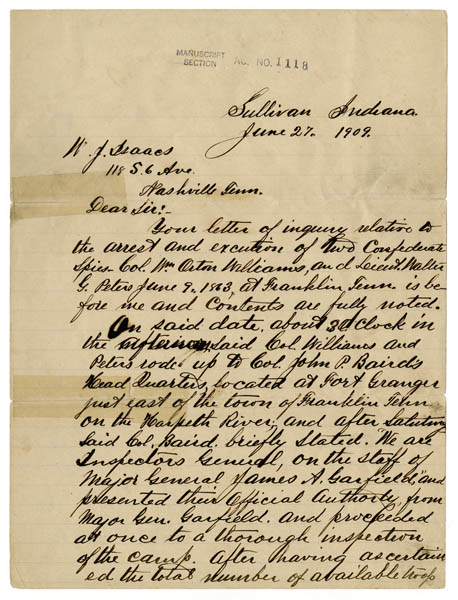 MANUSCRIPT
SECTION AC. NO. 1118
Sullivan Indiana.
June 27. 1909.
W. J. Isaacs
118 S. 6 Ave.
Nashville Tenn.
Dear Sir:-
Your letter of inquiry relative to
the arrest and excution of two Confederate
Spies Col. Wm Orton Williams, and Lieut. Walter
G. Peters June 9, 1863, at Franklin Tenn. is be
fore me and Contents are fully noted.
On said date, about 3 O'Clock in
the afternoon, said Col Williams and
Peters rode up to Col. John P. Baird's
Head Quarters, located at Fort Granger
just east of the town of Franklin Tenn
on the Harpeth River, and after Saluting
Said Col. Baird. briefly Stated. "We are
Inspectors General, on the staff of
Major General James A. Garfield," and
presented their Official Authority, from
Major Gen. Garfield. and proceeded
at once to a thorough inspection
of the camp. After having ascertain
ed the total number of available troop